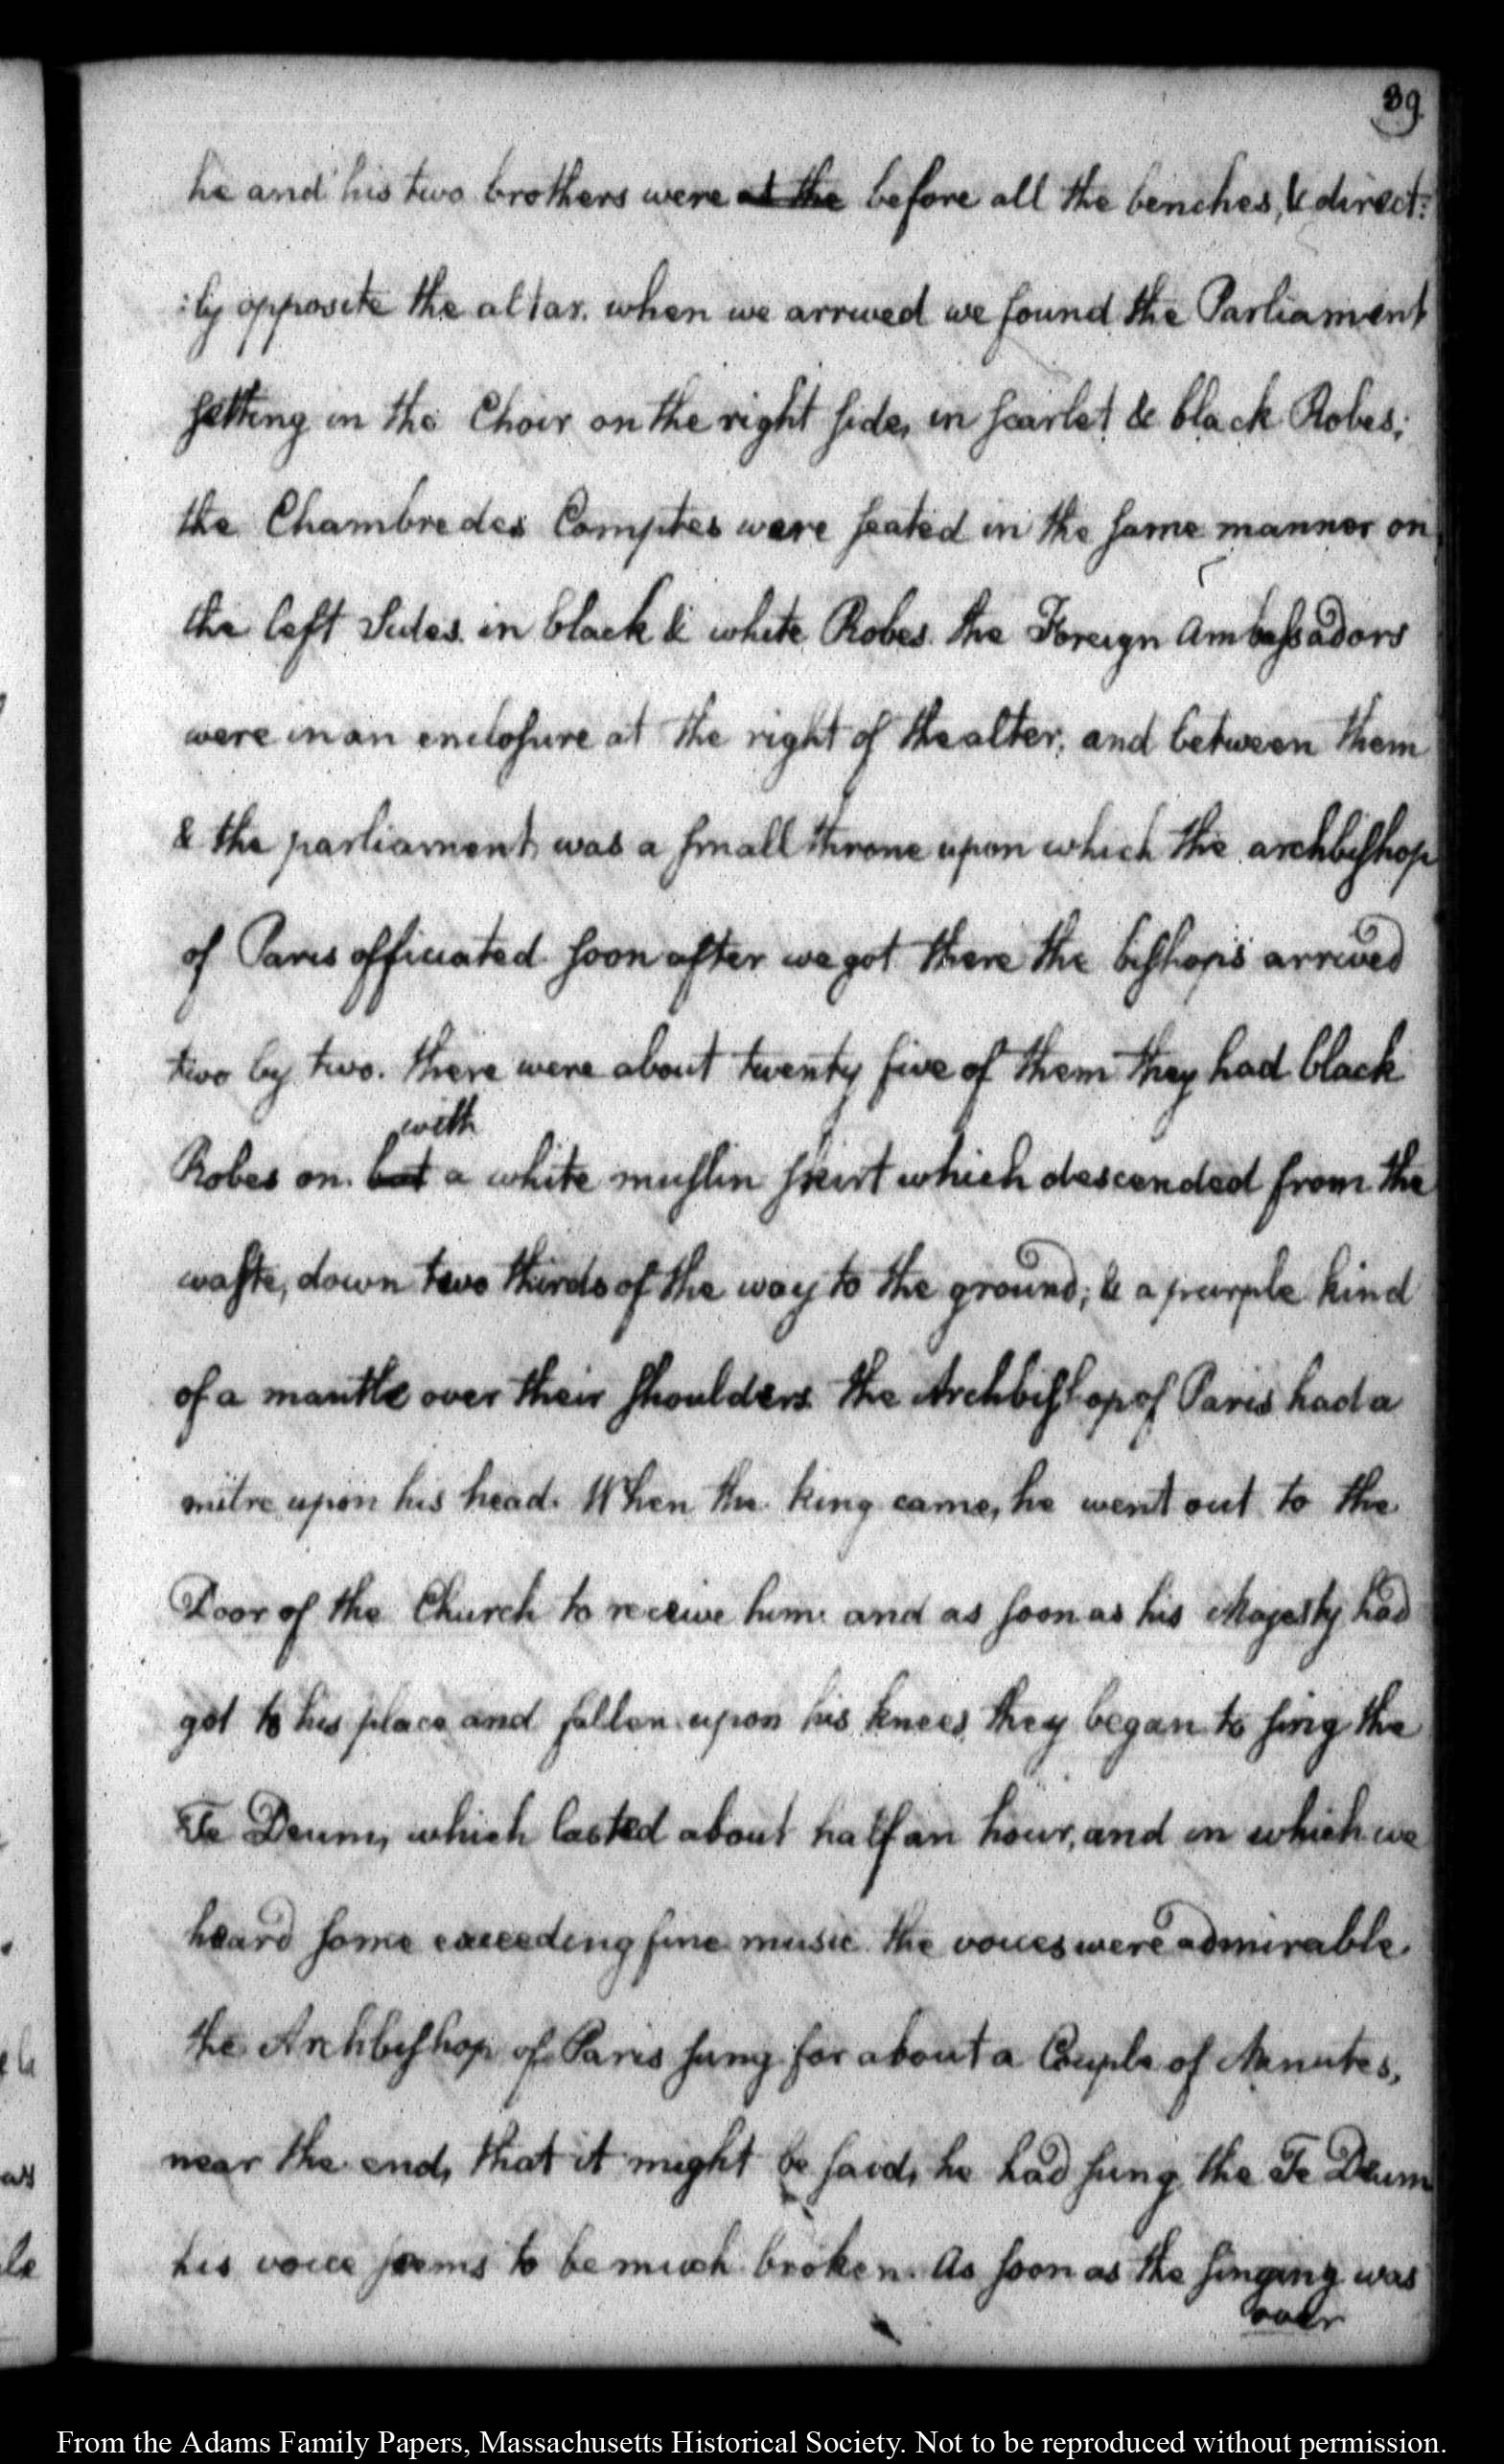 39
he and his two brothers were at the before all the benches, & direct:
:ly opposite the altar. when we arrived we found the Parliament
setting in the Choir on the right side, in scarlet & black Robes;
the Chambre des Comptes were seated in the same manner on
the left Sides. in black & white Robes. the Foreign Ambassadors
were in an enclosure at the right of the alter, and between them
& the parliament, was a small throne upon which the archbishop
of Paris officiated. soon after we got there the bishops arrived
two by two. there were about twenty five of them they had black
with
Robes on. but a white muslin skirt which descended from the
waste, down two thirds of the way to the ground; & a purple kind
of a mantle over their shoulders. the Archbishop of Paris had a
mitre upon his head. When the king came, he went out to the
Door of the Church to receive him: and as soon as his Majesty had
got to his place and fallen upon his knees, they began to sing the
Te Deum, which lasted about half an hour, and in which we
heard some exceeding fine music. the voices were admirable.
the Archbishop of Paris sung for about a Couple of Minutes,
near the end, that it might be said, he had sung the Te Deum
his voice seems to be much broken. As soon as the singing was
over
From the Adams Family Papers, Massachusetts Historical Society. Not to be reproduced without permission.